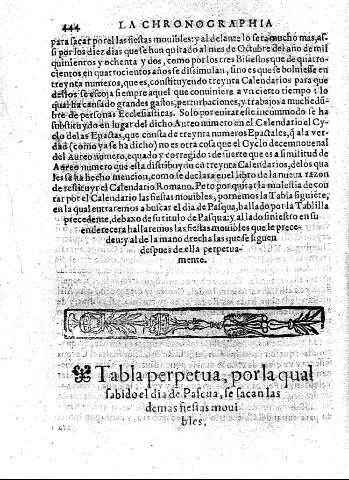 444 LA CHRONOGRAPHIA
para sacar por el las fiestas mouibles: y al delante lo sera mucho mas, as
si por los diez dias que se hun quitado al mes de Octubre del año de mil
quinientos y ochenta y dos, como por los tres Bisiestos que de quatro-
cientos en quatrocientos años se dissimulan, sino es que se boluiesse en
treynta numeros, que es, constituyendo treynta Calendarios para que
destos se escoja siempre aquel que conuiniere a vn cierto tiempo: lo
qual ha causado grandes gastos, perturbaciones, y trabajos a muchedu-
bre de personas Ecclesiasticas. Solo por euitar este incommodo se ha
substituydo en lugar del dicho Aureo numero en el Calendario el Cy-
clo de las Epactas, que consta de treynta numeros Epactales, q̃ a la ver
dad (como ya se ha dicho) no es otra cosa que el Cyclo decemnouenal
del Aureo numero, equado y corregido: de suerte que es a similitud de
Aureo numero que esta distribuydo en treynta Calendarios, de los qua
les se ha hecho mencion, como se declara en el libro de la nueua razon
de restituyr el Calendario Romano. Pero por quitar la molestia de con
tar por el Calendario las fiestas mouibles, pornemos la Tabla siguiẽte,
en la qual entraremos a buscar el dia de Pascua, hallado por la Tablilla
precedente, debaxo de su titulo de Pascua: y al lado siniestro en su
enderecera hallaremos las fiestas mouibles que le prece-
den: y al de la mano drecha las que se siguen
despues de ella perpetua-
mente.
Tabla perpetua, por la qual
sabido el dia de Pascua, se sacan las
demas fiestas moui
bles.